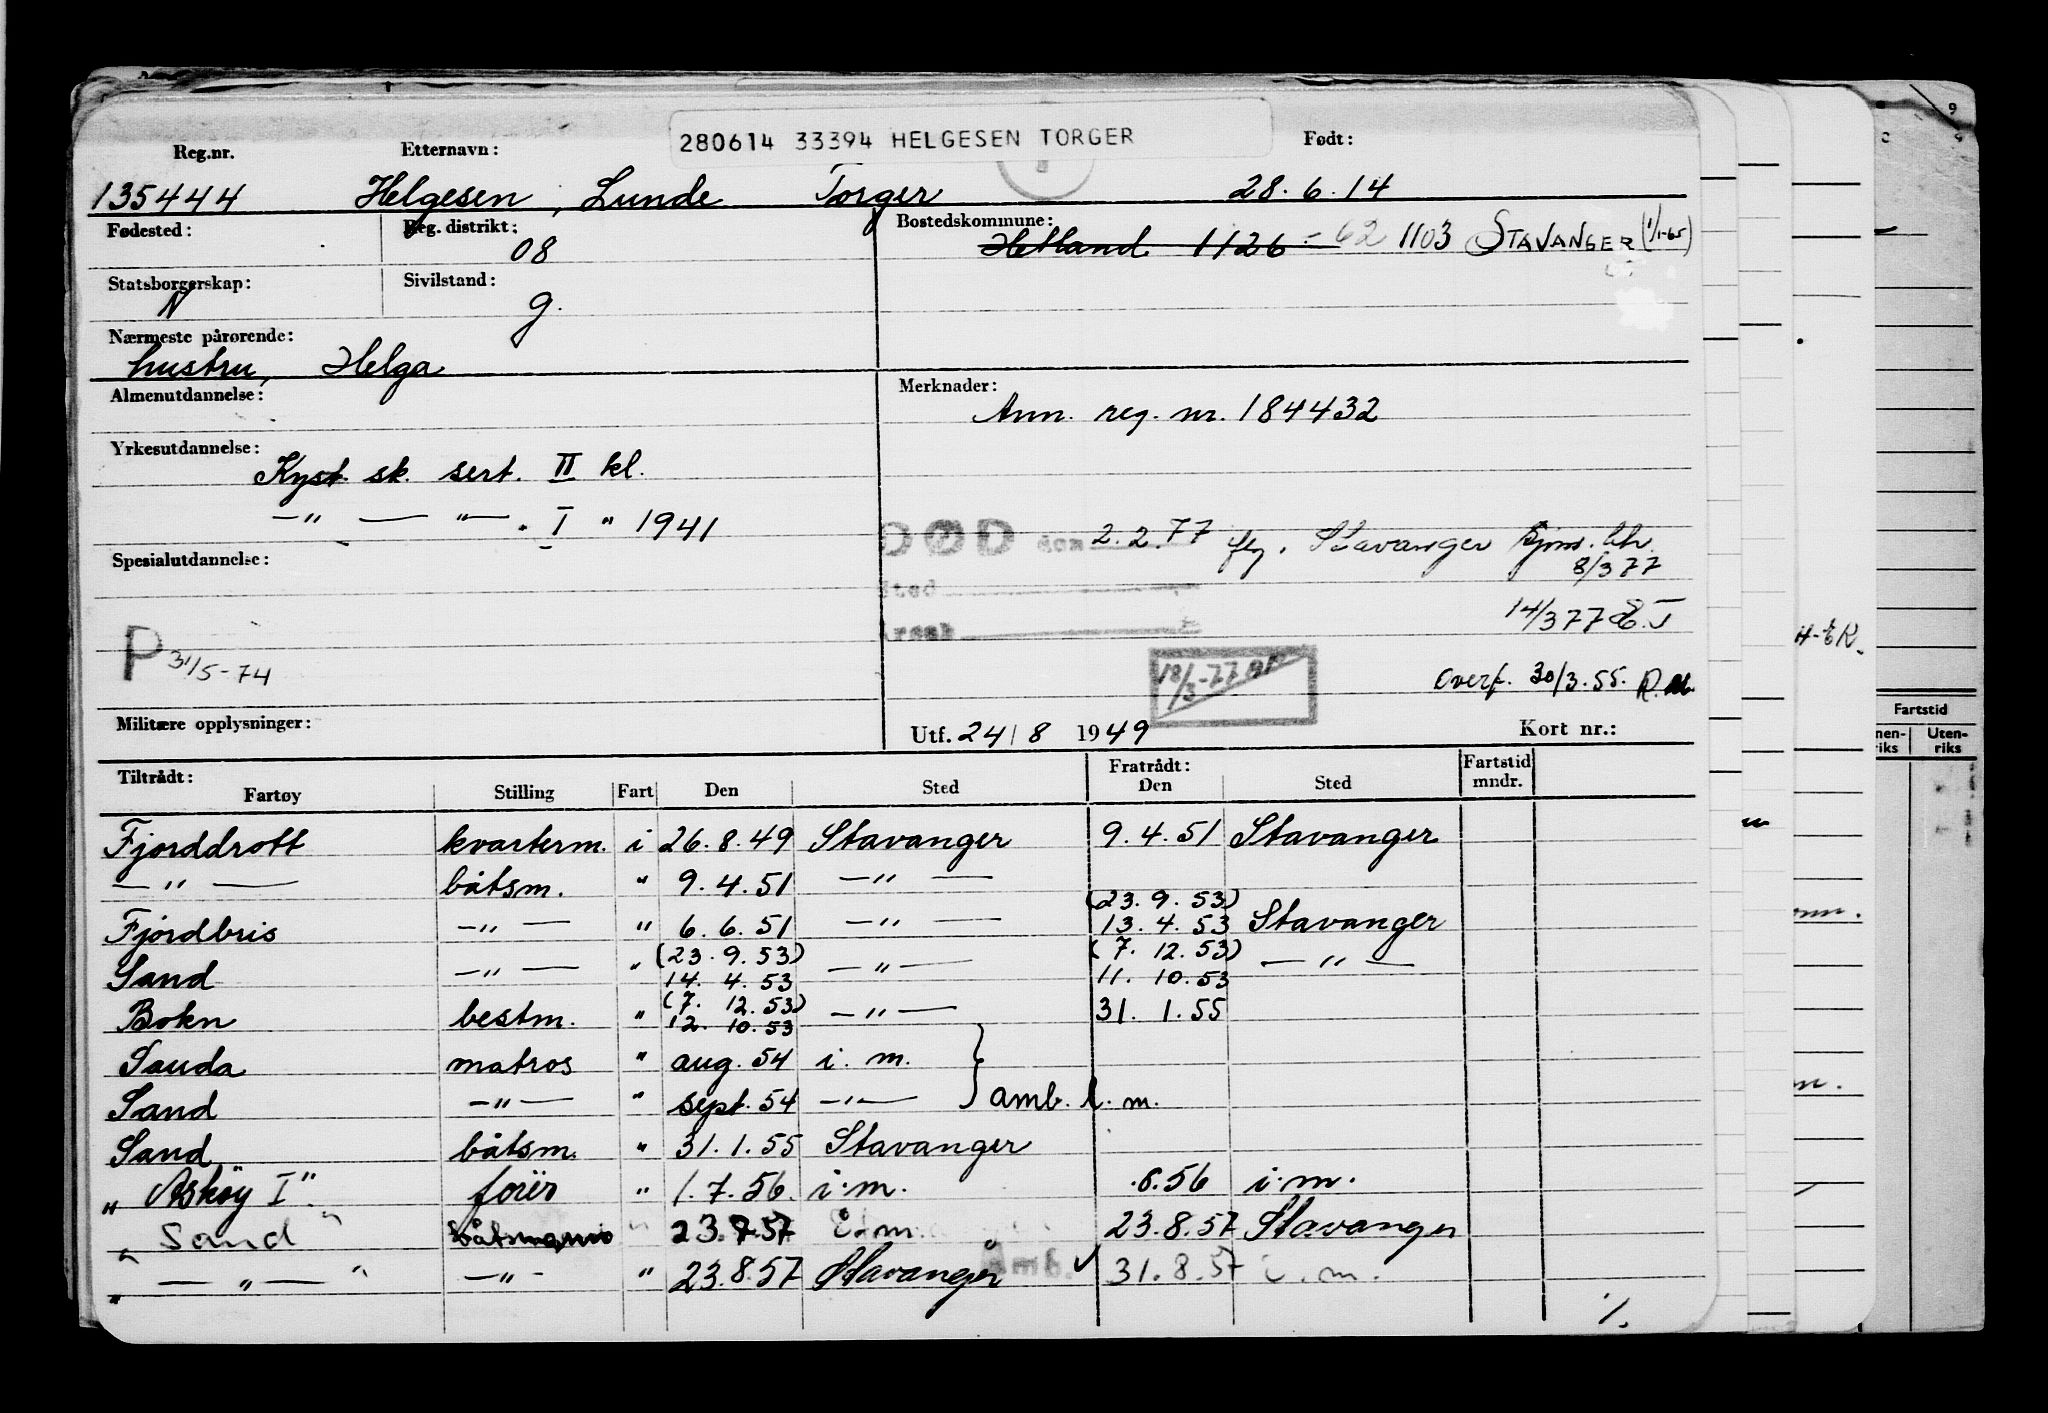 280614 33394 HELGESEN TORGER
Reg.nr. Etternavn: Født:
135444 Helgesen, Lunde Torger 28.6.14
Fødested: Reg. distrikt: Bostedskommune:
08 Hetland 1126 - 62 1103 STAVANGER (1/1-65)
Statsborgerskap: Sivilstand:
N g.
Nærmeste pårørende:
hustru, Helga
Almenutdannelse: Merknader:
Ann. reg. nr. 184432
Yrkesutdannelse:
Kyst. sk. sert. II kl.
—"— —"— . I " 1941
DØD den 2.2.77 flg. Stavanger Sjøm.
8/3 77
Spesialutdannelse:
Sted
Årsak
14/3 77 E.T
P 31/5-74
18/3-77
Overf. 30/3.55. R.M.
Militære opplysninger: Utf. 24/8 1949 Kort nr.:
Tiltrådt: Fratrådt: Fartstid
Fartøy Stilling Fart Den Sted Den Sted mndr.
Fjorddrott kvarterm. i 26.8.49 Stavanger 9.4.51 Stavanger
—"— båtsm. " 9.4.51 —"—
(23.9.53)
Fjordbris —"— " 6.6.51 —"— 13.4.53 Stavanger
(23.9.53) (7.12.53)
Sand —"— " 14.4.53 —"— 11.10.53 —"—
(7.12.53)
Bokn bestm. " 12.10.53 —"— 31.1.55
Sauda matros " aug. 54 i.m.
Sand —"— " sept. 54 —"— } amb. l.m.
Sand båtsm. " 31.1.55 Stavanger
"Askøy I" " 1.7.56. i.m. .8.56 i.m.
"Sand" båtsmann " 23.7.57 i.m. 23.8.57 Stavanger
"—"—" —"— " 23.8.57 Stavanger Amb. ✓ 31.8.57 i.m.
%.
H-ER.
Fartstid
Uten-
riks